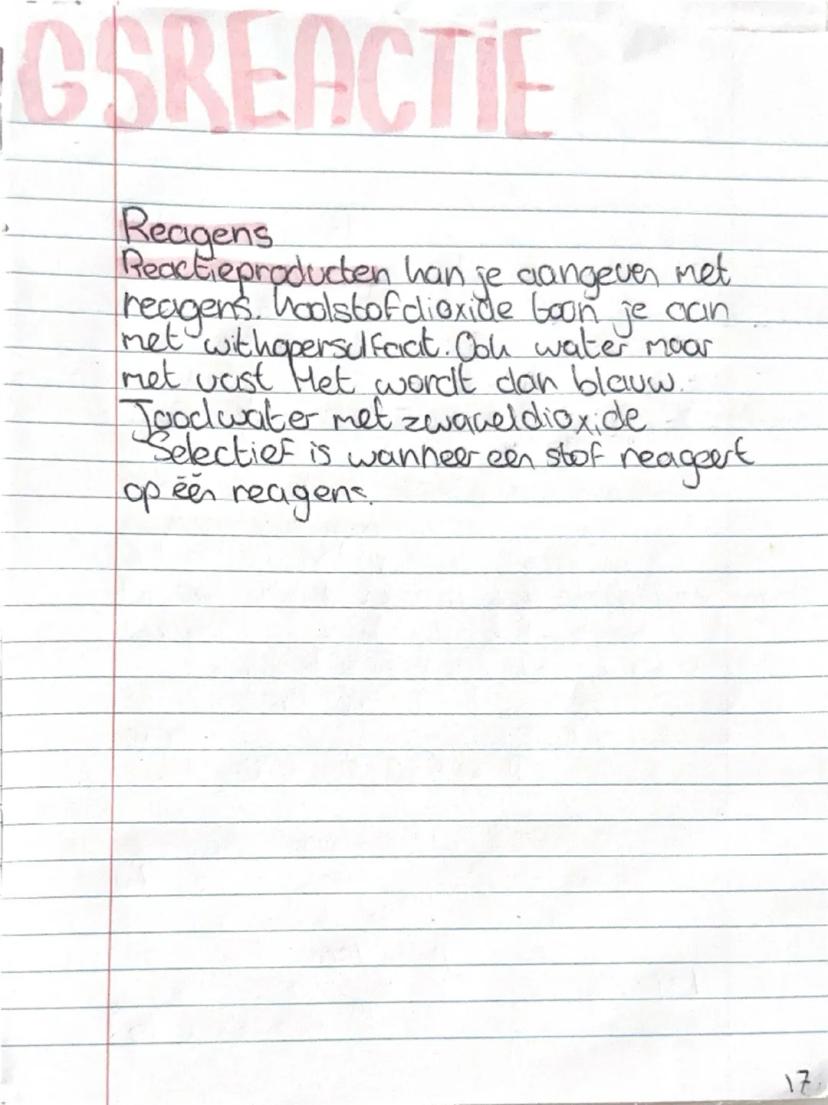 GSREACTiE
Reagens
Reactieproducten kan je aangeven met
reagens. koolstofdioxide toon je aan
met withopersulfaat. Ook water maar
met vast Het wordt dan blauw.
Joodwater met zwaveldioxide
Selectief is wanneer een stof reageert
op één reagens.
17.